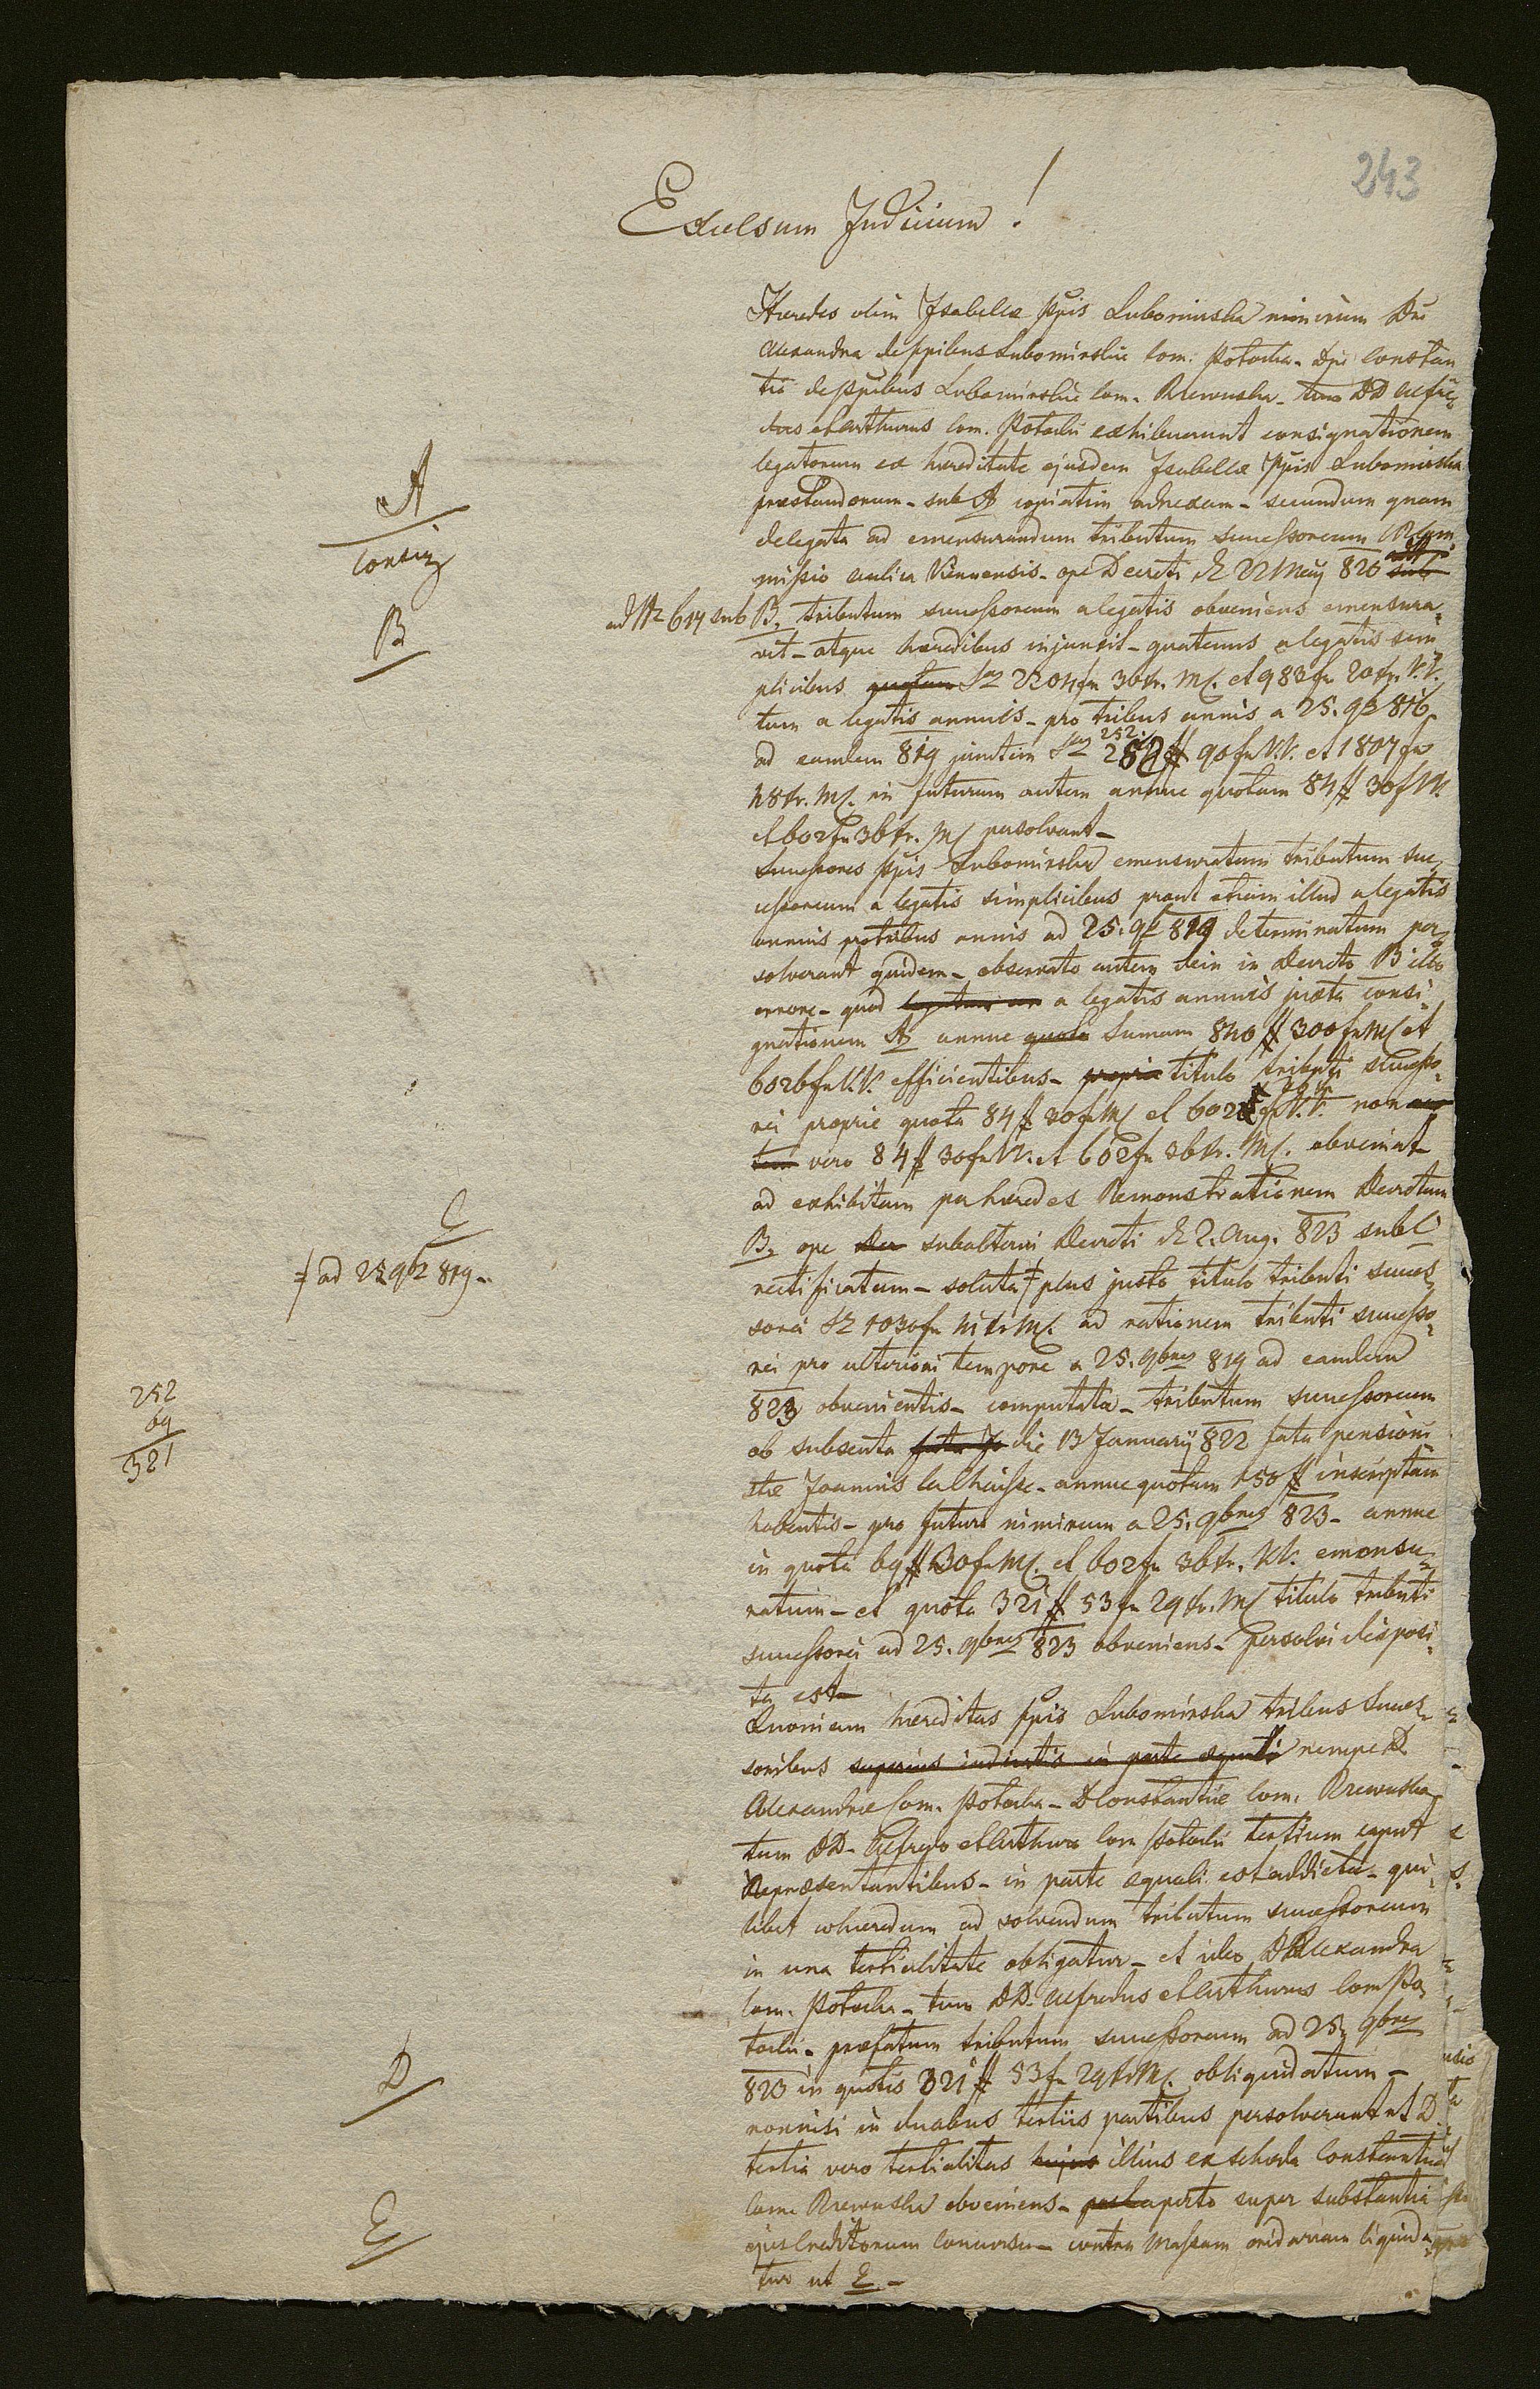 243
Excelsum Judicium!
Haeredes olim Isabellae Ppis Lubomirska nimirum Dna
Alexandra de Ppibus Lubomirskie Com. Potocka - Dna Constan
tia de Ppibus Lubomirskie Com. Rzewuska - tum DD Alfre-
dus et Arthurus Com. Potocki exhibuerunt consignationem
legatorum ex haereditate ejusdem Isabellae Ppis Lubomirska
praestandorum - sub A copiatim adnexam - secundum quam
A
Consig
delegata ad emensurandum tributum successoreum C.R. Com
missio aulica Viennensis - ope Decreti 22 Maij 820
ad N 614 sub B. tributum successoreum a legatis obveniens emensura-
B
vit - atque haeredibus injunxit - quatenus a legatis sim
plicibus 2204 fr 30 kr. M. et 983 fr 20 kr. V.V.
tum a legatis annuis - pro tribus annis a 25. 9b 816
ad eamdem 819 junctim 252 # 90 fr V.V. et 1807 fr
48 kr. M. in futurum autem annue quotam 84 # 30 f VV.
et 602 fr 36 kr. M persolvant -
Successores Ppis Lubomirska emensuratum tributum suc
cessoreum a legatis simplicibus prout etiam illud a legatis
annuis pro tribus annis ad 25. 9b 819 determinatum per
solverant quidem - observato autem dein in Decreto B illo
errore - quod a legatis annuis juxta consi-
gnationem A annue Sumam 840 # 300 fr M et
6026 fr V.V. efficientibus - titulo tributi successo-
rei proprie quota 84 # 30 fr M et 602 f V.V. non
vero 84 # 30 fr VV. et 602 fr 36 kr. M. obveniat -
ad exhibitam per haeredes Remonstrationem Decretum
B. ope subalterni Decreti 2. Aug. 823 sub C
C
rectificatum - soluta ǂ plus justo titulo tributi succes
ǂ ad 25 9b 819 -
sorei 1030 fr M. ad rationem tributi successo-
rei pro ulteriori tempore a 25. 9bris 819 ad eamdem
823 obvenientis - computata - tributum successoreum
252
69
321
ob subsecuta die 13 Januarij 822 fata pensioni
stae Joannis - annue quotam 150 # inscriptam
habentis - pro futuro nimirum a 25. 9bris 823 - annue
in quota 69 # 30 fr M. et 602 fr 36 kr. VV. emensu-
ratum - et quota 321 # 53 fr 29 kr. M titulo tributi
successorei ad 25. 9bris 823 obveniens - persolvi disposi-
ta est -
Quoniam haereditas Ppis Lubomirska tribus Succes-
soribus superius indicatis in parte aequali nempe D.
Alexandrae Com. Potocka - D Constantiae Com. Rzewuska
tum DD. Alfredo et Arthuro Com Potocki tertium caput
repraesentantibus - in parte aequali est addicta - qui-
libet cohaeredum ad solvendum tributum successoreum
in una tertialitate obligatur - et ideo D Alexandra
Com. Potocka - tum DD. Alfredus et Arthurus Com Po
tocki - praefatum tributum successoreum ad 25. 9bris
823 in quotis 321 # 53 fr 29 kr M. obliquidatum -
D
nonnisi in duabus tertiis partibus persolverunt ut D.
tertia vero tertialitas hujus illius ex scheda Constantiae
Com. Rzewuska obveniens - aperto super substantia
E
ejus Creditorum concursu - contra Massam cridariam liquida
tur ut E. -